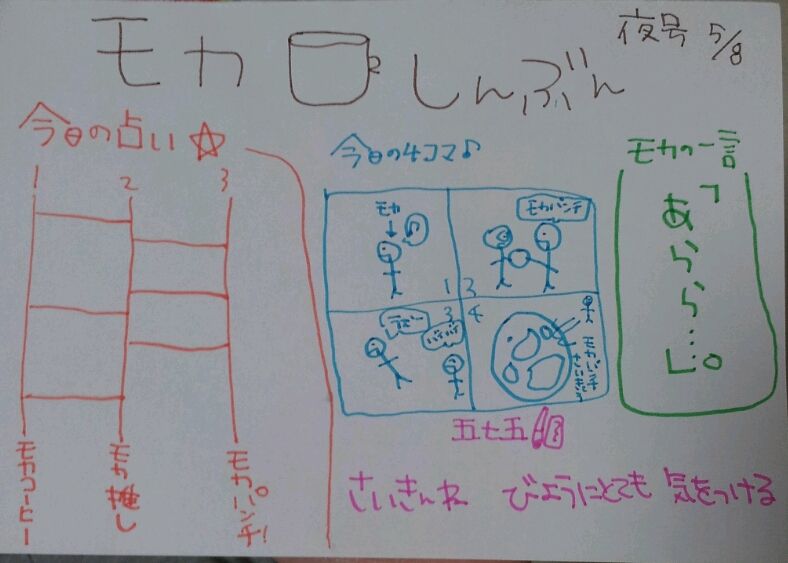 モカ しんぶん
夜号 5/8
今日の占い☆
1 2 3
モカコーヒー
モカ推し
モカパンチ!
今日の4コマ♪
モカ
1
モカパンチ
3
3
4
モカパンチ
さいきょう
五七五
さいきんね びょうにとても 気をつける
モカの一言
「あらら…」。